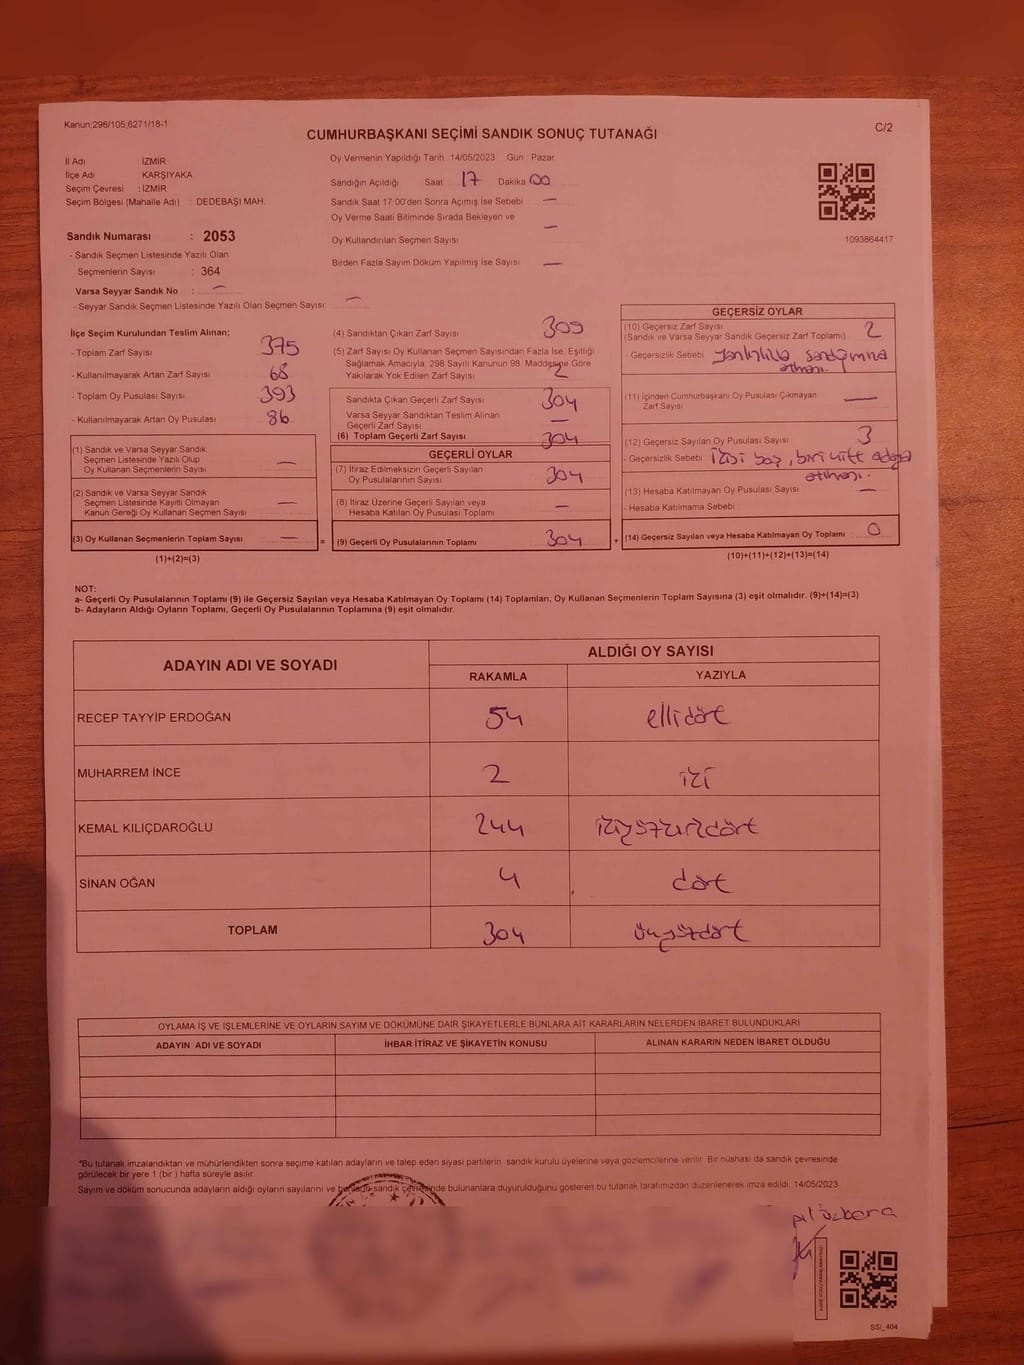 Kanun;298/105;6271/18-1
C/2
CUMHURBAŞKANI SEÇİMİ SANDIK SONUÇ TUTANAĞI
İl Adı İZMİR
İlçe Adı KARŞIYAKA
Seçim Çevresi : İZMİR
Seçim Bölgesi (Mahalle Adı) : DEDEBAŞI MAH.
Sandık Numarası : 2053
- Sandık Seçmen Listesinde Yazılı Olan
Seçmenlerin Sayısı : 364
Varsa Seyyar Sandık No : —
- Seyyar Sandık Seçmen Listesinde Yazılı Olan Seçmen Sayısı: —
Oy Vermenin Yapıldığı Tarih :14/05/2023 Gün : Pazar
Sandığın Açıldığı Saat 17 Dakika 00
Sandık Saat 17:00'den Sonra Açımış İse Sebebi —
Oy Verme Saati Bitiminde Sırada Bekleyen ve
Oy Kullandırılan Seçmen Sayısı —
Birden Fazla Sayım Döküm Yapılmış İse Sayısı —
1093864417
İlçe Seçim Kurulundan Teslim Alınan;
- Toplam Zarf Sayısı 375
- Kullanılmayarak Artan Zarf Sayısı 68
- Toplam Oy Pusulası Sayısı 393
- Kullanılmayarak Artan Oy Pusulası 86
(1) Sandık ve Varsa Seyyar Sandık
Seçmen Listesinde Yazılı Olup
Oy Kullanan Seçmenlerin Sayısı —
(2) Sandık ve Varsa Seyyar Sandık
Seçmen Listesinde Kayıtlı Olmayan
Kanun Gereği Oy Kullanan Seçmen Sayısı —
(3) Oy Kullanan Seçmenlerin Toplam Sayısı —
(1)+(2)=(3)
(4) Sandıktan Çıkan Zarf Sayısı 309
(5) Zarf Sayısı Oy Kullanan Seçmen Sayısından Fazla İse, Eşitliği
Sağlamak Amacıyla; 298 Sayılı Kanunun 98. Maddesine Göre
Yakılarak Yok Edilen Zarf Sayısı 2
Sandıkta Çıkan Geçerli Zarf Sayısı 304
Varsa Seyyar Sandıktan Teslim Alınan
Geçerli Zarf Sayısı —
(6) Toplam Geçerli Zarf Sayısı 304
GEÇERLİ OYLAR
(7) İtiraz Edilmeksizin Geçerli Sayılan
Oy Pusulalarının Sayısı 304
(8) İtiraz Üzerine Geçerli Sayılan veya
Hesaba Katılan Oy Pusulası Toplamı —
= (9) Geçerli Oy Pusulalarının Toplamı 304 +
GEÇERSİZ OYLAR
(10) Geçersiz Zarf Sayısı
(Sandık ve Varsa Seyyar Sandık Geçersiz Zarf Toplamı) 2
- Geçersizlik Sebebi
(11) İçinden Cumhurbaşkanı Oy Pusulası Çıkmayan
Zarf Sayısı —
(12) Geçersiz Sayılan Oy Pusulası Sayısı 3
- Geçersizlik Sebebi ikisi boş, biri çift adaya
atılması.
(13) Hesaba Katılmayan Oy Pusulası Sayısı —
- Hesaba Katılmama Sebebi
(14) Geçersiz Sayılan veya Hesaba Katılmayan Oy Toplamı 0
(10)+(11)+(12)+(13)=(14)
NOT:
a- Geçerli Oy Pusulalarının Toplamı (9) ile Geçersiz Sayılan veya Hesaba Katılmayan Oy Toplamı (14) Toplamları, Oy Kullanan Seçmenlerin Toplam Sayısına (3) eşit olmalıdır. (9)+(14)=(3)
b- Adayların Aldığı Oyların Toplamı, Geçerli Oy Pusulalarının Toplamına (9) eşit olmalıdır.
ADAYIN ADI VE SOYADI ALDIĞI OY SAYISI
RAKAMLA YAZIYLA
RECEP TAYYİP ERDOĞAN 54 ellidört
MUHARREM İNCE 2 iki
KEMAL KILIÇDAROĞLU 244 ikiyüzkırkdört
SİNAN OĞAN 4 dört
TOPLAM 304 üçyüzdört
OYLAMA İŞ VE İŞLEMLERİNE VE OYLARIN SAYIM VE DÖKÜMÜNE DAİR ŞİKAYETLERLE BUNLARA AİT KARARLARIN NELERDEN İBARET BULUNDUKLARI
ADAYIN ADI VE SOYADI İHBAR İTİRAZ VE ŞİKAYETİN KONUSU ALINAN KARARIN NEDEN İBARET OLDUĞU
*Bu tutanak imzalandıktan ve mühürlendikten sonra seçime katılan adayların ve talep eden siyasi partilerin sandık kurulu üyelerine veya gözlemcilerine verilir. Bir nüshası da sandık çevresinde
görülecek bir yere 1 (bir) hafta süreyle asılır.
Sayım ve döküm sonucunda adayların aldığı oyların sayılarını ve bunların sandık çevresinde bulunanlara duyurulduğunu gösteren bu tutanak tarafımızdan düzenlenerek imza edildi. 14/05/2023
SSİ_404